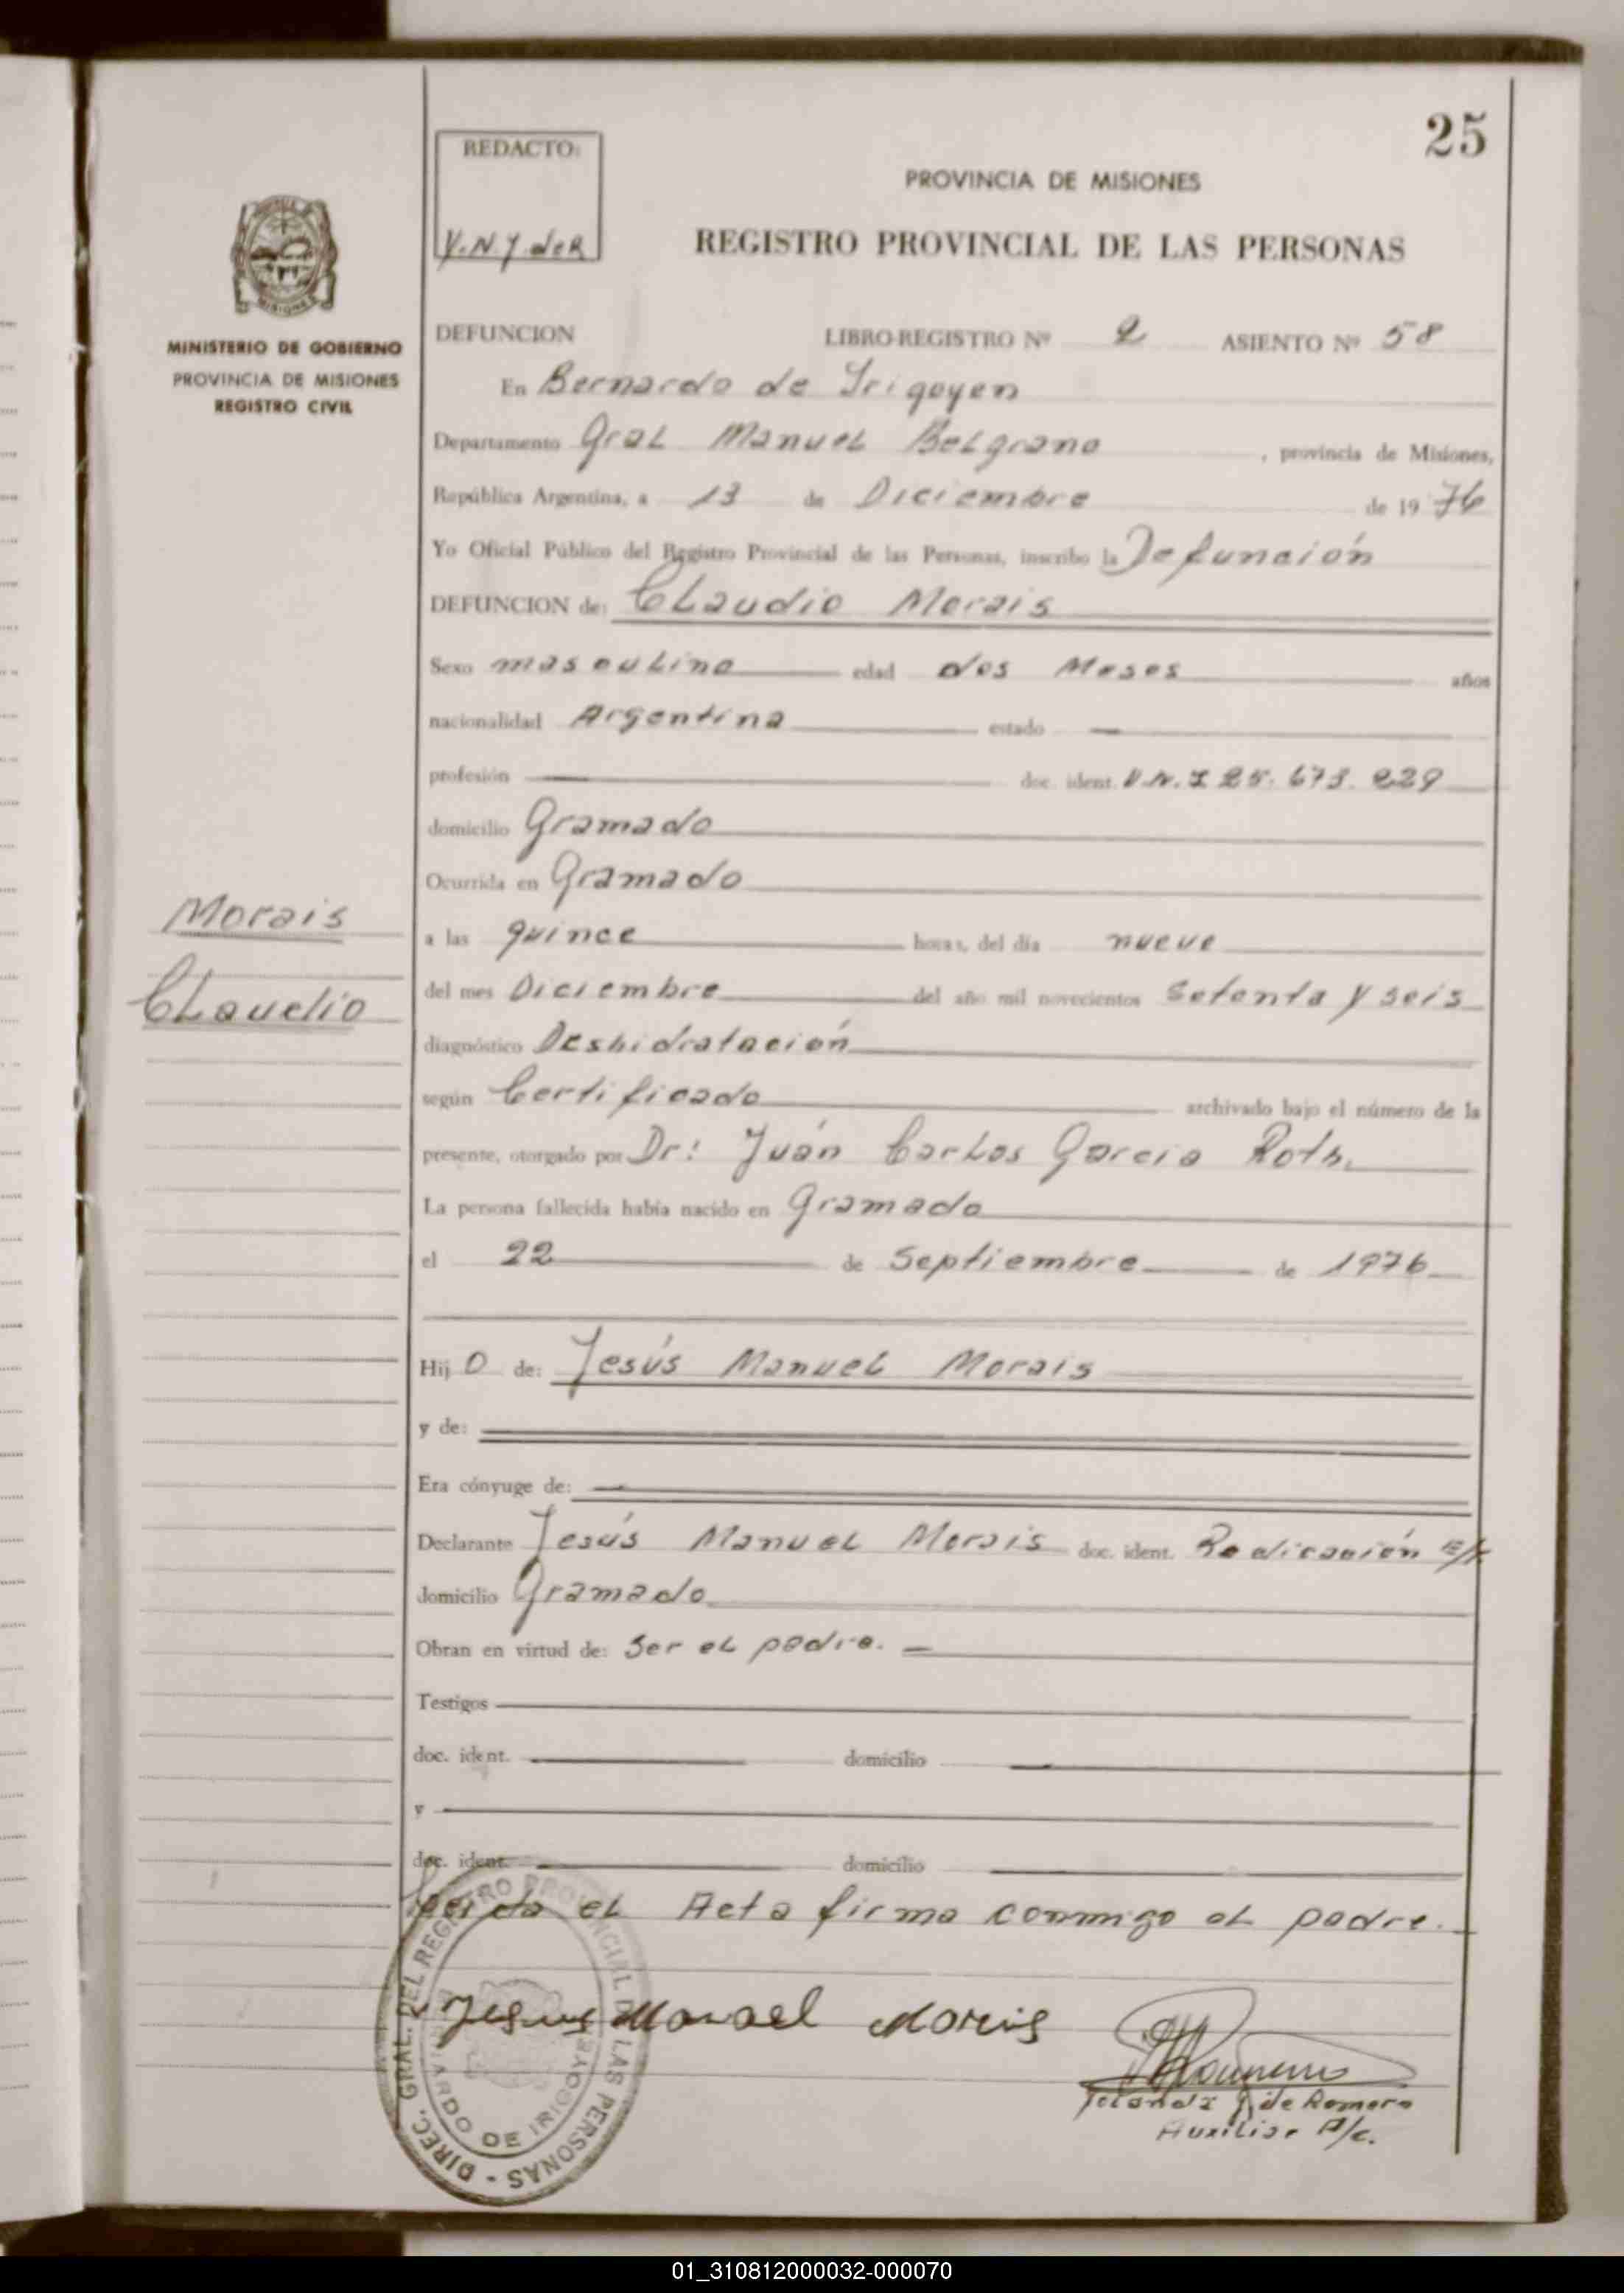 25
REDACTO:
V.N.Y. de R
PROVINCIA DE MISIONES
REGISTRO PROVINCIAL DE LAS PERSONAS
MINISTERIO DE GOBIERNO
PROVINCIA DE MISIONES
REGISTRO CIVIL
DEFUNCION LIBRO-REGISTRO Nº 2 ASIENTO Nº 58
En Bernardo de Irigoyen
Departamento Gral Manuel Belgrano, provincia de Misiones,
República Argentina, a 13 de Diciembre de 1976
Yo Oficial Público del Registro Provincial de las Personas, inscribo la Defunción
DEFUNCION de: Claudio Morais
Sexo masculino edad dos Meses años
nacionalidad Argentina estado —
profesión — doc. ident. D.N.I 25.673.229
domicilio Gramado
Ocurrida en Gramado
Morais
Claudio
a las quince horas, del día nueve
del mes Diciembre del año mil novecientos Setenta y seis
diagnóstico Deshidratación
según Certificado archivado bajo el número de la
presente, otorgado por Dr: Juán Carlos Garcia Roth.
La persona fallecida había nacido en Gramado
el 22 de Septiembre de 1976
Hij o de: Jesús Manuel Morais
y de:
Era cónyuge de: —
Declarante Jesús Manuel Morais doc. ident. Radicación E/t
domicilio Gramado
Obran en virtud de: Ser el padre. —
Testigos
doc. ident. domicilio
y
doc. ident. domicilio
el Acta firma conmigo el padre.
Jesus Manuel Morais
Yolanda de Romero
Auxiliar A/c.
DIREC. GRAL. DEL REGISTRO PROVINCIAL DE LAS PERSONAS -
DE IRIGOYEN
01_310812000032-000070